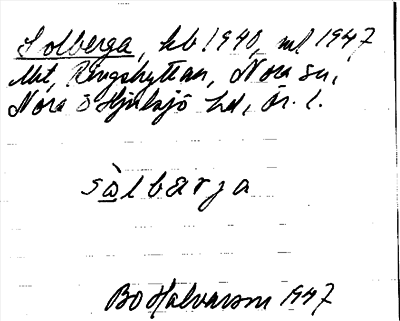 Solberga, kb 1940, ml 1947
lht, Ringshyttan, Nora sn,
Nora o Hjulsjö hd, Ör. l.
sàlbarja
Bo Halvarson 1947